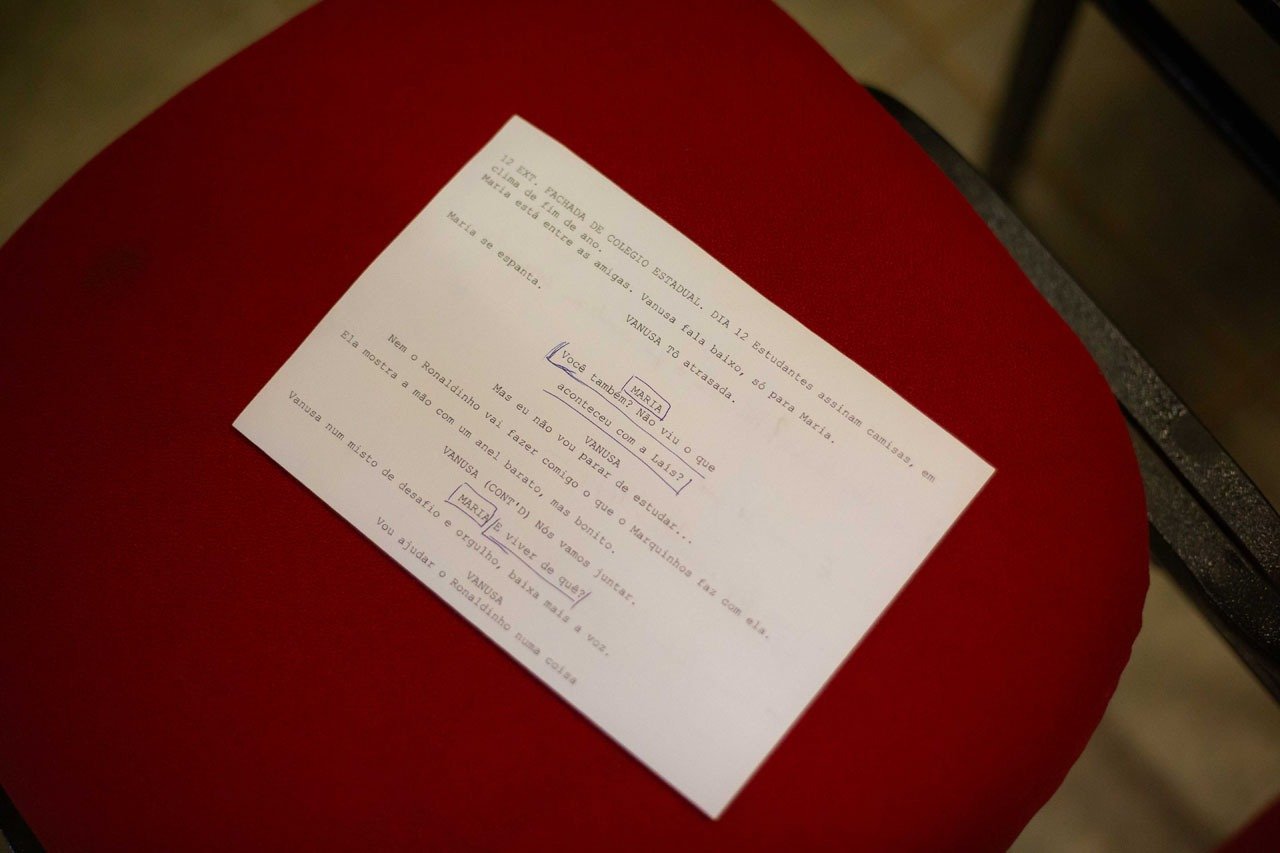 12 EXT. FACHADA DE COLEGIO ESTADUAL. DIA 12 Estudantes assinam camisas, em
clima de fim de ano.
Maria está entre as amigas. Vanusa fala baixo, só para Maria.
VANUSA Tô atrasada.
Maria se espanta.
MARIA
Você também? Não viu o que
aconteceu com a Laís?
VANUSA
Mas eu não vou parar de estudar...
Nem o Ronaldinho vai fazer comigo o que o Marquinhos faz com ela.
Ela mostra a mão com um anel barato, mas bonito.
VANUSA (CONT'D) Nós vamos juntar.
MARIA E viver de quê?
Vanusa num misto de desafio e orgulho, baixa mais a voz.
VANUSA
Vou ajudar o Ronaldinho numa coisa